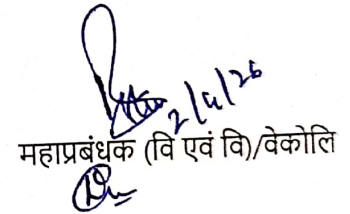 2/4/26
महाप्रबंधक (वि एवं वि)/वेकोलि